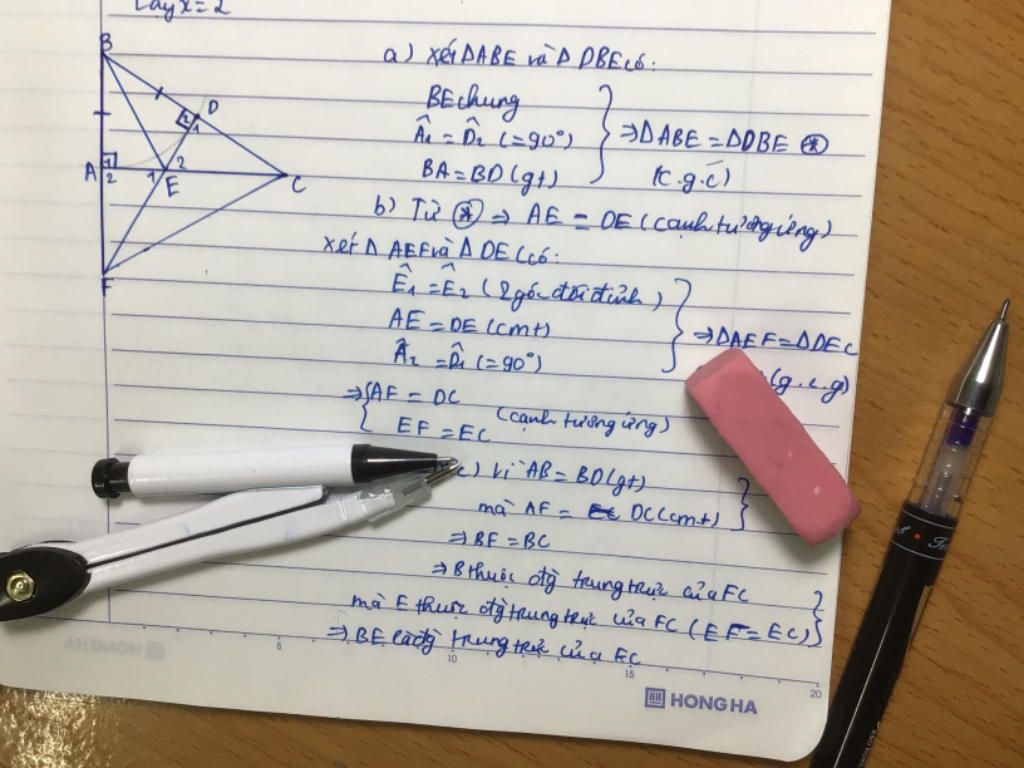 Lấy x = 2
B
D
2
1
A
1
2
1
2
E
C
F
a) xét ΔABE và Δ DBE có:
BE chung
Â1 = D̂2 (=90°)
BA = BD (gt)
⇒ ΔABE = ΔDBE (*)
(c.g.c)
b) Từ (*) ⇒ AE = DE (cạnh tương ứng)
xét Δ AEF và Δ DEC có:
Ê1 = Ê2 (2 góc đối đỉnh)
AE = DE (cmt)
Â2 = D̂1 (=90°)
⇒ ΔAEF = ΔDEC
(g.c.g)
⇒ { AF = DC
EF = EC (cạnh tương ứng)
c) Vì AB = BD (gt)
mà AF = DC (cmt)
⇒ BF = BC
⇒ B thuộc đg trung trực của FC
mà E thuộc đg trung trực của FC (EF = EC)
⇒ BE là đg trung trực của FC
5
10
15
20
HH HONG HA